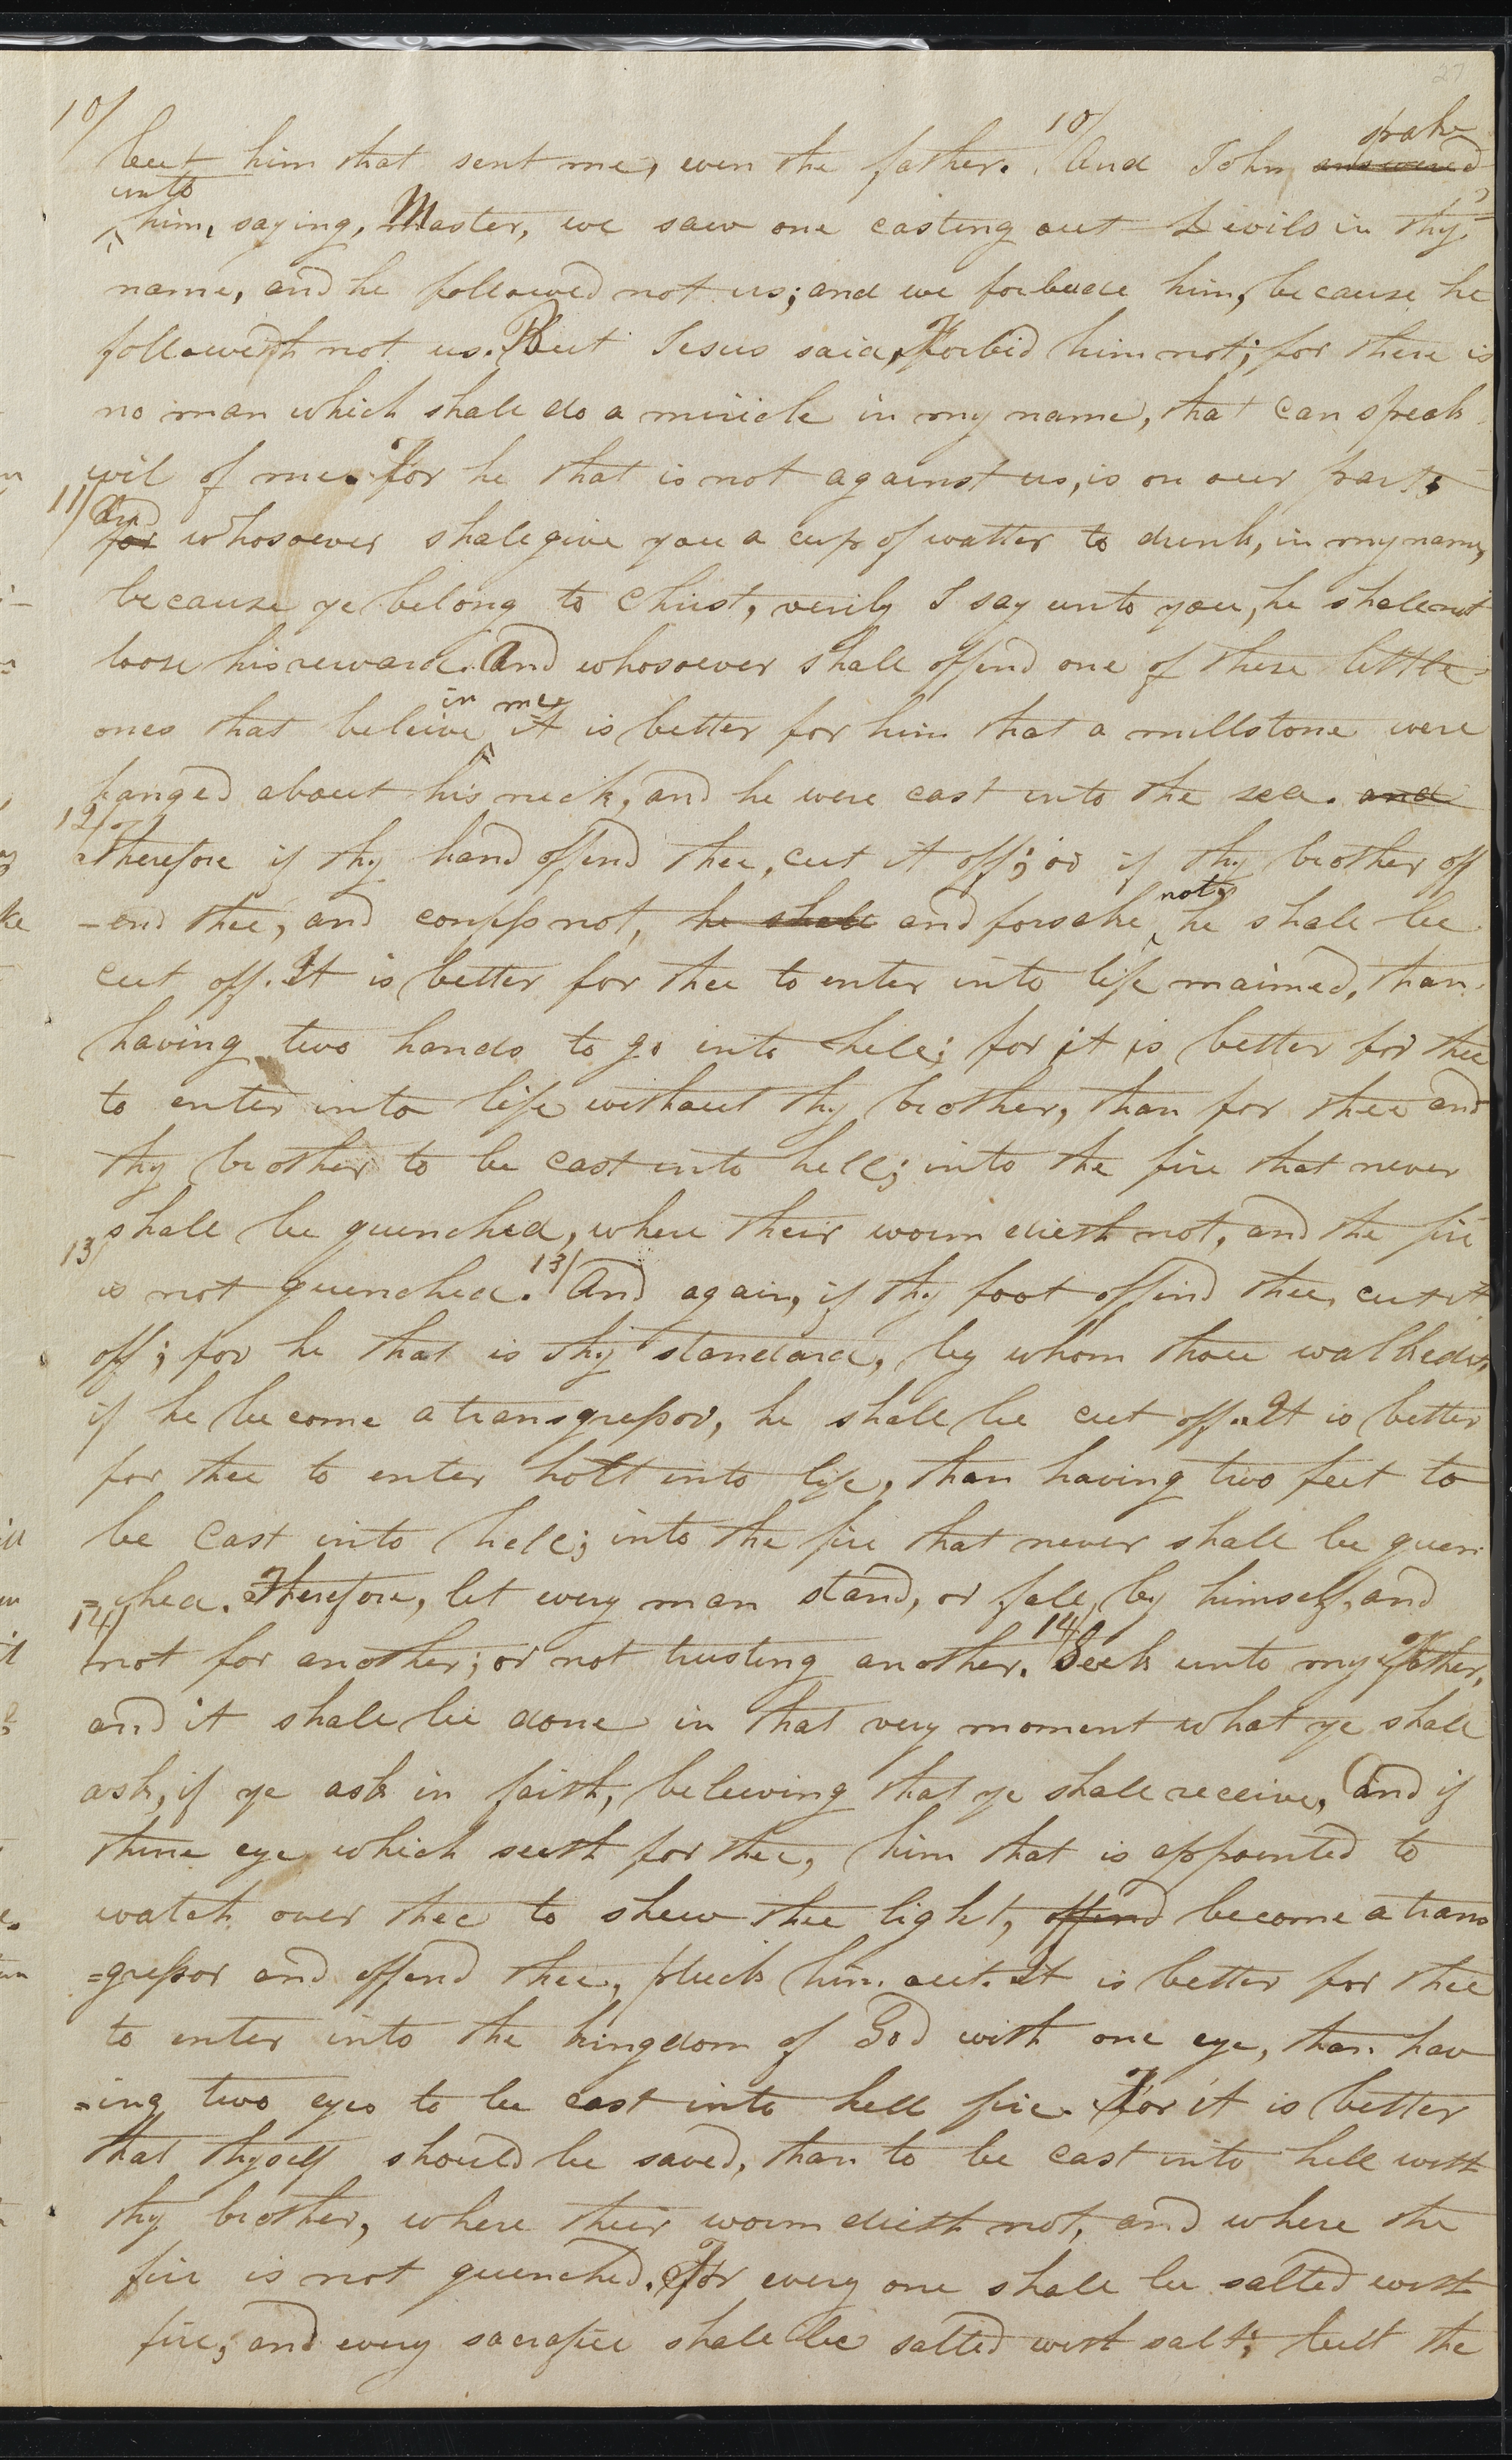 27
10/ but him that sent me, even the father. 10/ And John answered spake
unto him, saying, Master, we saw one casting out Devils in thy
name, and he followed not us; and we forbade him, because he
followeth not us. But Jesus said, Forbid him not; for there is
no man which shall do a miricle in my name, that can speak
evil of me. For he that is not against us, is on our part;
11/ for And whosoever shall give you a cup of watter to drink, in my name,
because ye belong to Christ, verily I say unto you, he shall not
loose his reward. And whosoever shall offend one of these little
ones that beleive in me, it is better for him that a millstone were
hanged about his neck, and he were cast into the sea. and
12/ Therefore if thy hand offend thee, cut it off; or if thy brother off
-end thee, and confess not, he shall and forsake not, he shall be
cut off. It is better for thee to enter into life maimed, than
having two hands to go into hell; for it is better for thee
to enter into life without thy brother, than for thee and
thy brother to be cast into hell; into the fire that never
shall be quenched, where their worm dieth not, and the fire
13/ is not quenched. 13/ And again, if thy foot offend thee, cut it
off; for he that is thy standard, by whom thou walkedst,
if he become a transgressor, he shall be cut off. It is better
for thee to enter holt into life, than having two feet to
be cast into hell; into the fire that never shall be quen
=ched. Therefore, let every man stand, or fall, by himself, and
14/ not for another; or not trusting another. 14/ Seek unto my Father,
and it shall be done in that very moment what ye shall
ask, if ye ask in faith, beleiving that ye shall receive, And if
thine eye which seeth for thee, him that is appointed to
watch over thee to shew thee light, offend become a trans
=gressor and offend thee, pluck him out. It is better for thee
to enter into the kingdom of God with one eye, than hav
=ing two eyes to be cast into hell fire. For it is better
that thyself should be saved, than to be cast into hell with
thy brother, where their worm dieth not, and where the
fire is not quenched. For every one shall be salted with
fire; and every sacrafice shall be salted with salt; but the